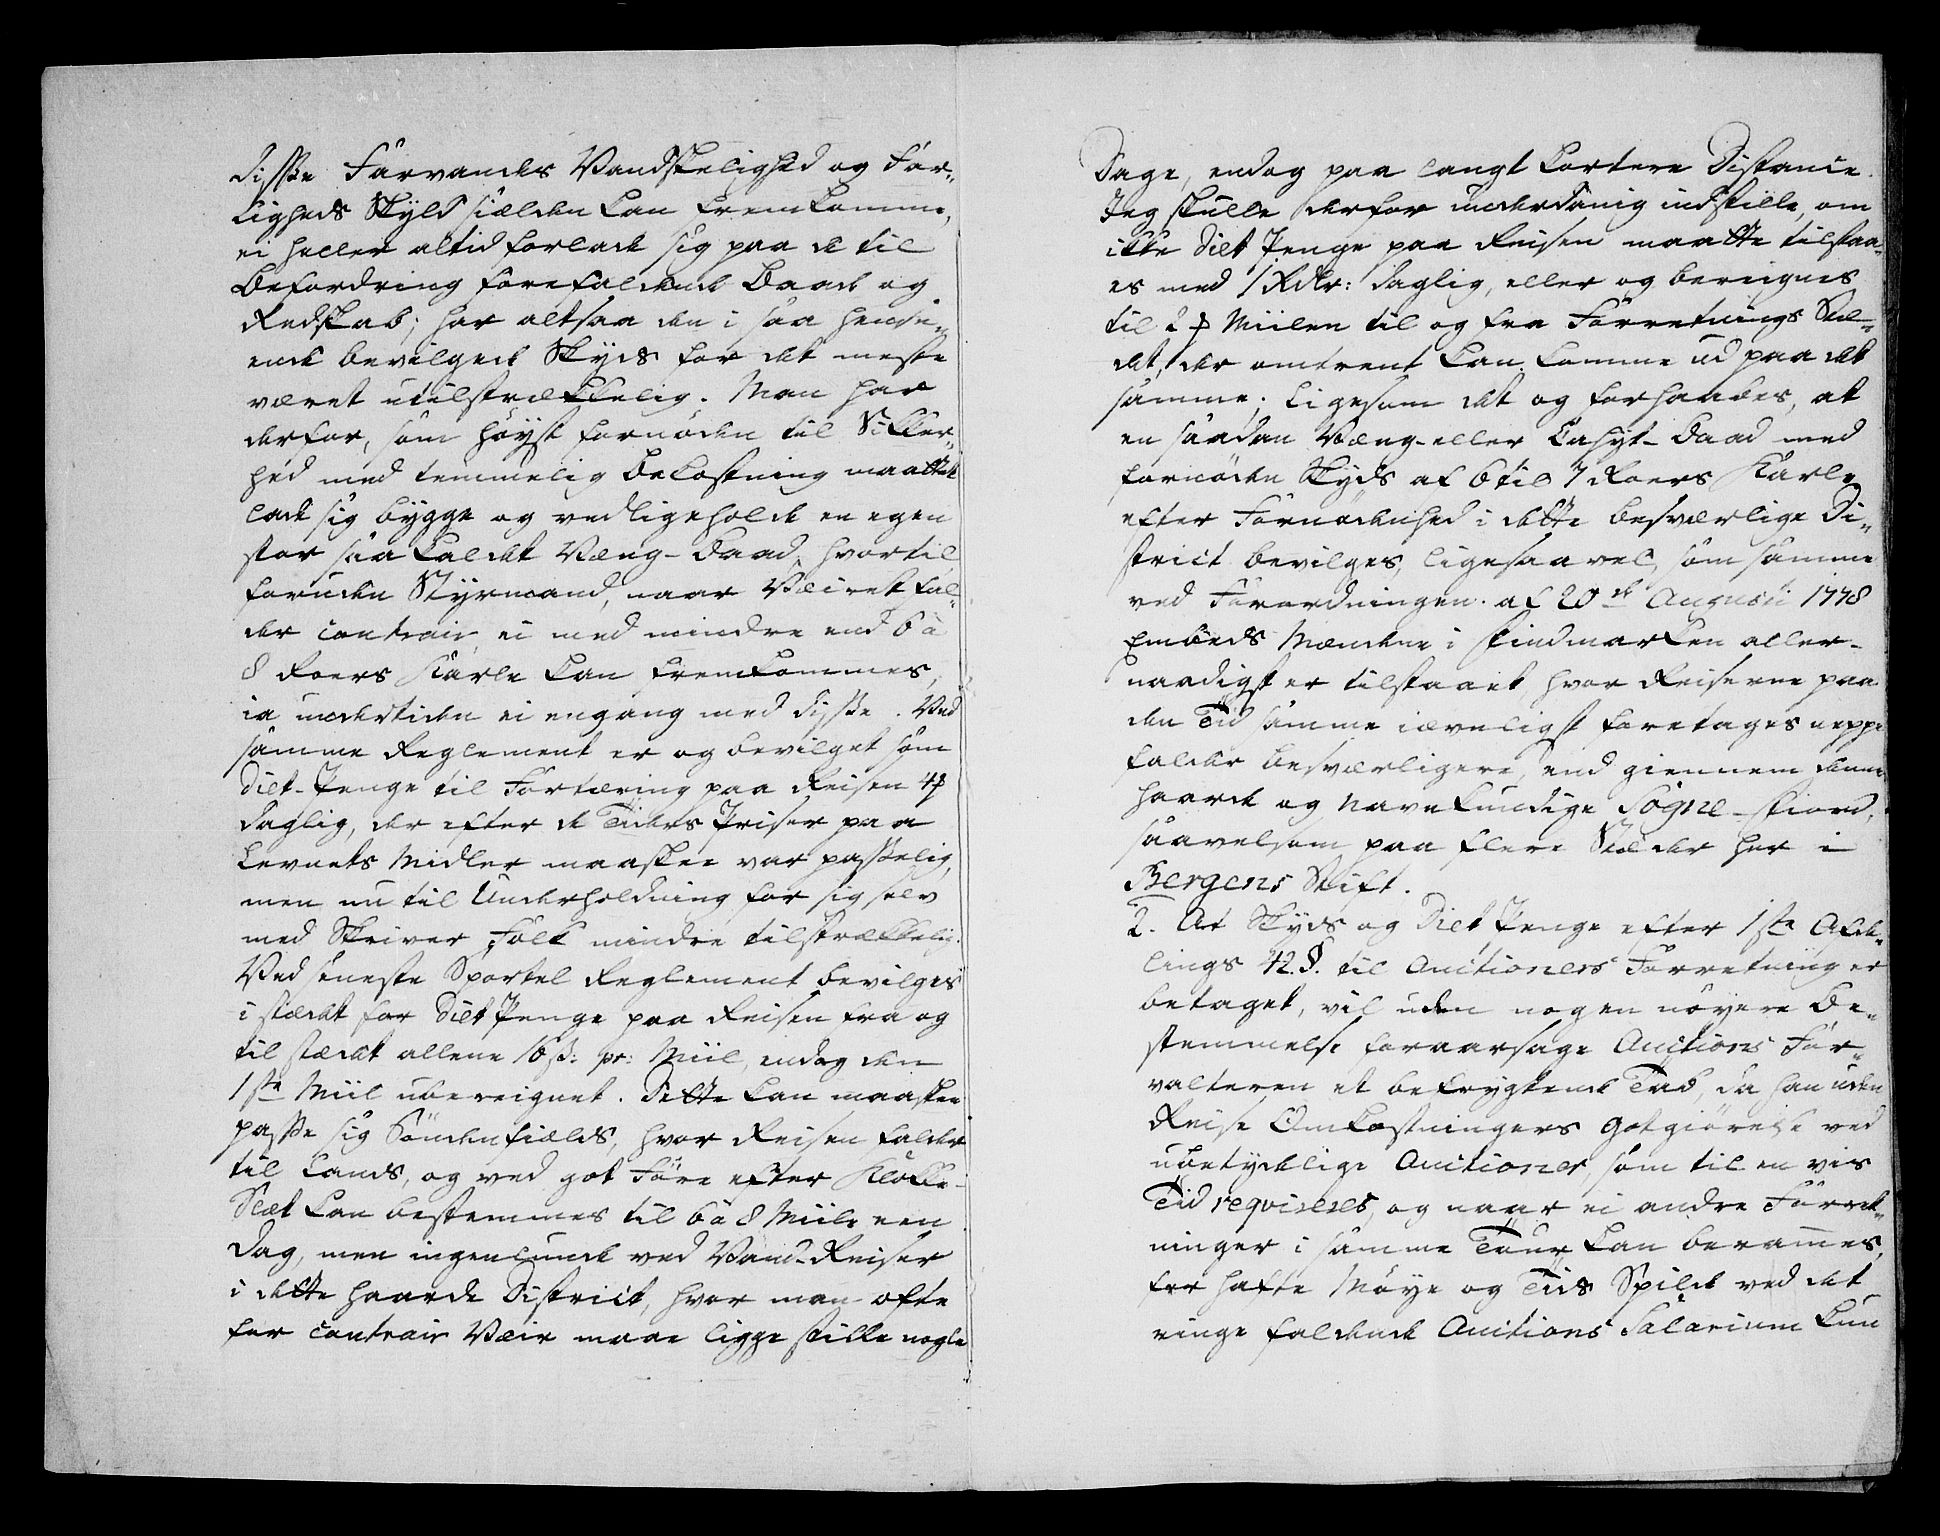 disse Farvandes Vandskelighed og Far-
ligheds Skyld siælden kan fremkomme,
ei heller altid forlade sig paa de til
Befordring forefaldende Baade og
Redskab; har altsaa den i saa hense-
ende bevilgede Skyds for det meste
været utilstrækkelig. Man har
derfor, som høyst fornøden til Sikker-
hed med temmelig Bekostning maattet
lade sig bygge og vedligeholde en egen
stor saa kaldet Væng-Baad, hvortil
foruden Styrmand, naar Væiret fal-
der contrair ei med mindre end 6 à
8 Roers Karle kan fremkommes,
ia undertiden ei engang med disse. Ved
samme Reglement er og bevilget som
Diet-Penge til Fortæring paa Reisen 4 ₰
daglig, der efter de Tiders Priser paa
Levnets Midler maaskee var passelig,
men nu til Underholdning for sig selv
med Skriver Folk mindre tilstrækkelig.
Ved seneste Sportel Reglement bevilges
i stædet for Diet Penge paa Reisen fra og
til stædet allene 16 ß: pr: Miil, endog den
1ste Miil ubereignet. Dette kan maaskee
passe sig Søndenfields, hvor Reisen falder
til Lands, og ved got Føre efter Klokke-
Slæt kan bestemmes til 6 à 8 Miile een
Dag, men ingenlunde ved Vand-Reiser
i dette haarde District, hvor man ofte
for contrair Væir maae ligge stille nogle
Dage, endog paa langt kortere Distance.
Jeg skulle derfor underdanig indstille, om
ikke Diet Penge paa Reisen maatte tilstaa-
es med 1 Rdlr: daglig, eller og bereignes
til 2 ₰ Miilen til og fra Forretnings Stæ-
det, der omtrent kan komme ud paa det
samme; Ligesom det og forhaabes, at
en saadan Væng- eller Cahyt-Baad med
fornøden Skyds af 6 til 7 Roers Karle
efter Fornødenhed i dette besværlige Di-
strict bevilges, ligesaavel, som samme
ved Forordningen af 20de Augusti 1778
Embeds Mændene i Findmarken aller-
naadigst er tilstaaet, hvor Reiserne paa
den Tid samme iævnligst foretages neppe
falder besværligere, end giennem denne
haarde og navnkundige Sogne-Fiord,
saavelsom paa flere Stæder her i
Bergens Stift.
2. At Skyds og Diet Penge efter 1ste Afde-
lings 42. §. til Auctioners Forretning er
betaget, vil uden nogen nøyere Be-
stemmelse foraarsage Auctions For-
valteren et befrygtende Tab, da han uden
Reise Omkostningers Gotgiørelse ved
ubetydelige Auctioner, som til en vis
Tid requireres, og naar ei andre Forret-
ninger i samme Tour kan berammes,
for hafte Møye og Tids Spilde ved det
ringe faldende Auctions Salarium kun